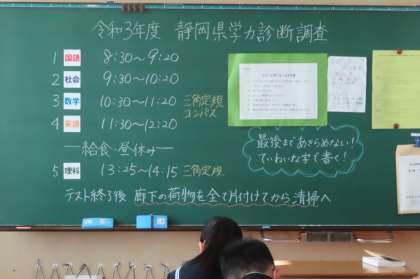 令和3年度 静岡県学力診断調査
1 国語 8:30～9:20
2 社会 9:30～10:20
3 数学 10:30～11:20 三角定規 コンパス
4 英語 11:30～12:20
―給食・昼休み―
5 理科 13:25～14:15 三角定規
テスト終了後 廊下の荷物を全て片付けてから清掃へ
最後まであきらめない!
ていねいな字で書く!